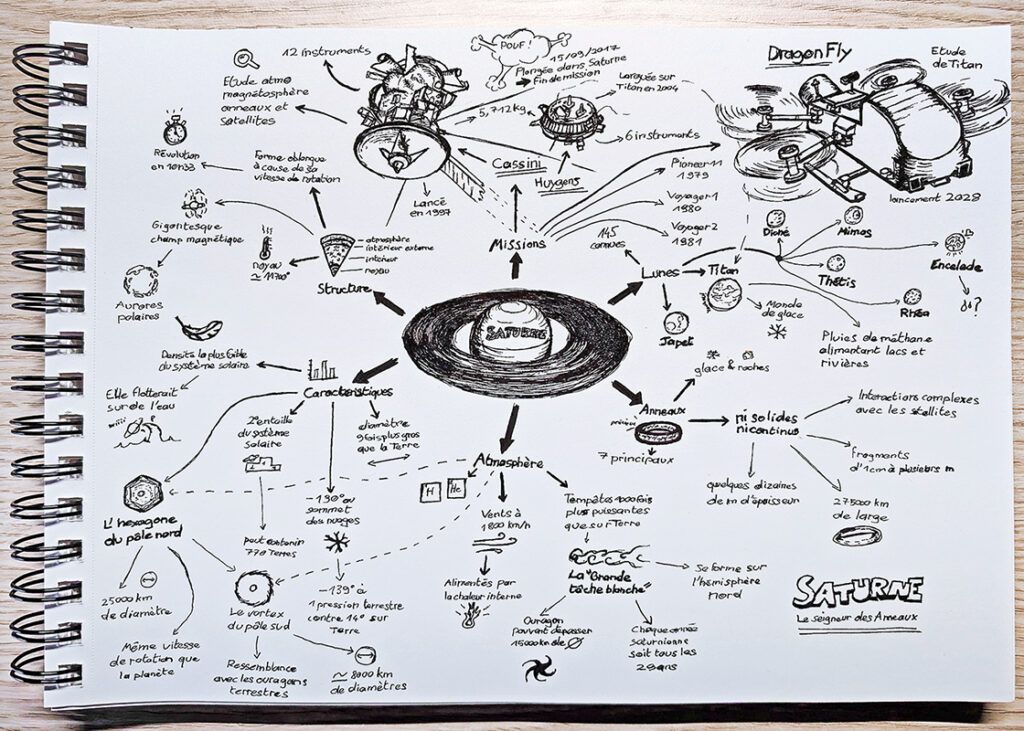 12 instruments
Etude atmo
magnétosphère
anneaux et
satellites
POUF!
15/09/2017
Plongée dans Saturne
Fin de mission
5,712 kg
Larguée sur
Titan en 2004
6 instruments
Cassini
Huygens
Lancé
en 1997
DragonFly
Etude
de Titan
lancement 2028
Pioneer 11
1979
Voyager 1
1980
Voyager 2
1981
Missions
Révolution
en 10h33
Forme oblongue
à cause de sa
vitesse de rotation
Gigantesque
champ magnétique
Aurores
polaires
noyau
≃ 11700°
atmosphère
intérieur externe
intérieur
noyau
Structure
SATURNE
145
connues
Lunes
Titan
Dioné
Mimas
Encelade
?
Thétis
Rhéa
Japet
Monde
de glace
Pluies de méthane
alimentant lacs et
rivières
Densité la plus faible
du système solaire
Elle flotterait
sur de l'eau
Caractéristiques
2e en taille
du système
solaire
peut contenir
770 Terres
diamètre
9 fois plus gros
que la Terre
-130° au
sommet
des nuages
-139° à
1 pression terrestre
contre 14° sur
Terre
L'hexagone
du pôle nord
25000 km
de diamètre
Même vitesse
de rotation que
la planète
Le vortex
du pôle sud
Ressemblance
avec les ouragans
terrestres
≃ 8000 km
de diamètres
Atmosphère
H
He
Vents à
1800 km/h
Alimentés par
la chaleur interne
Tempêtes 1000 fois
plus puissantes
que sur Terre
La "Grande
tâche blanche"
Se forme sur
l'hémisphère
nord
Ouragan
pouvant dépasser
15000 km de Ø
Chaque année
saturnienne
soit tous les
29 ans
glace & roches
Anneaux
7 principaux
ni solides
ni continus
Interactions complexes
avec les stellites
Fragments
d'1cm à plusieurs m
quelques dizaines
de m d'épaisseur
275000 km
de large
SATURNE
Le seigneur des Anneaux